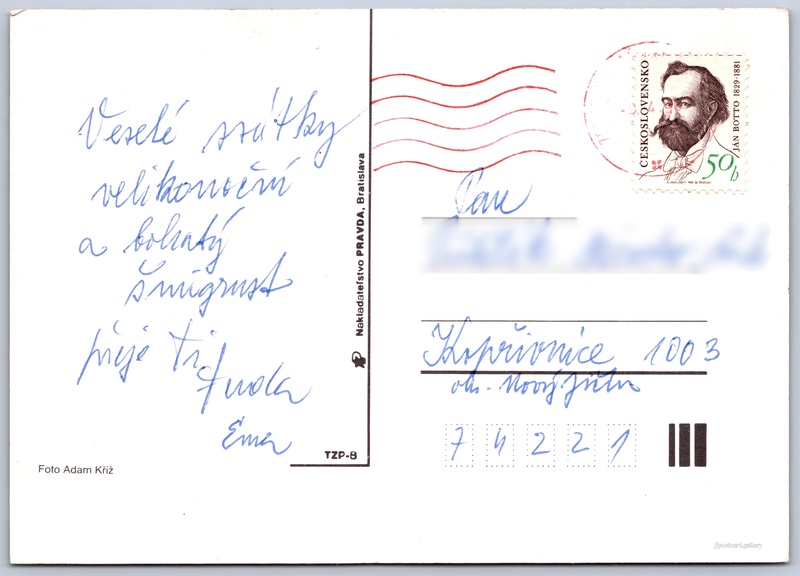 Veselé svátky
velikonoční
a bohatý
šmigrust
přeje Ti
Ema
Foto Adam Kříž
TZP-B
Nakladateľstvo PRAVDA, Bratislava
ČESKOSLOVENSKO
JÁN BOTTO 1829-1881
50 h
Pan
Kopřivnice 1003
okr. Nový Jičín
7 4 2 2 1
//postcard.gallery